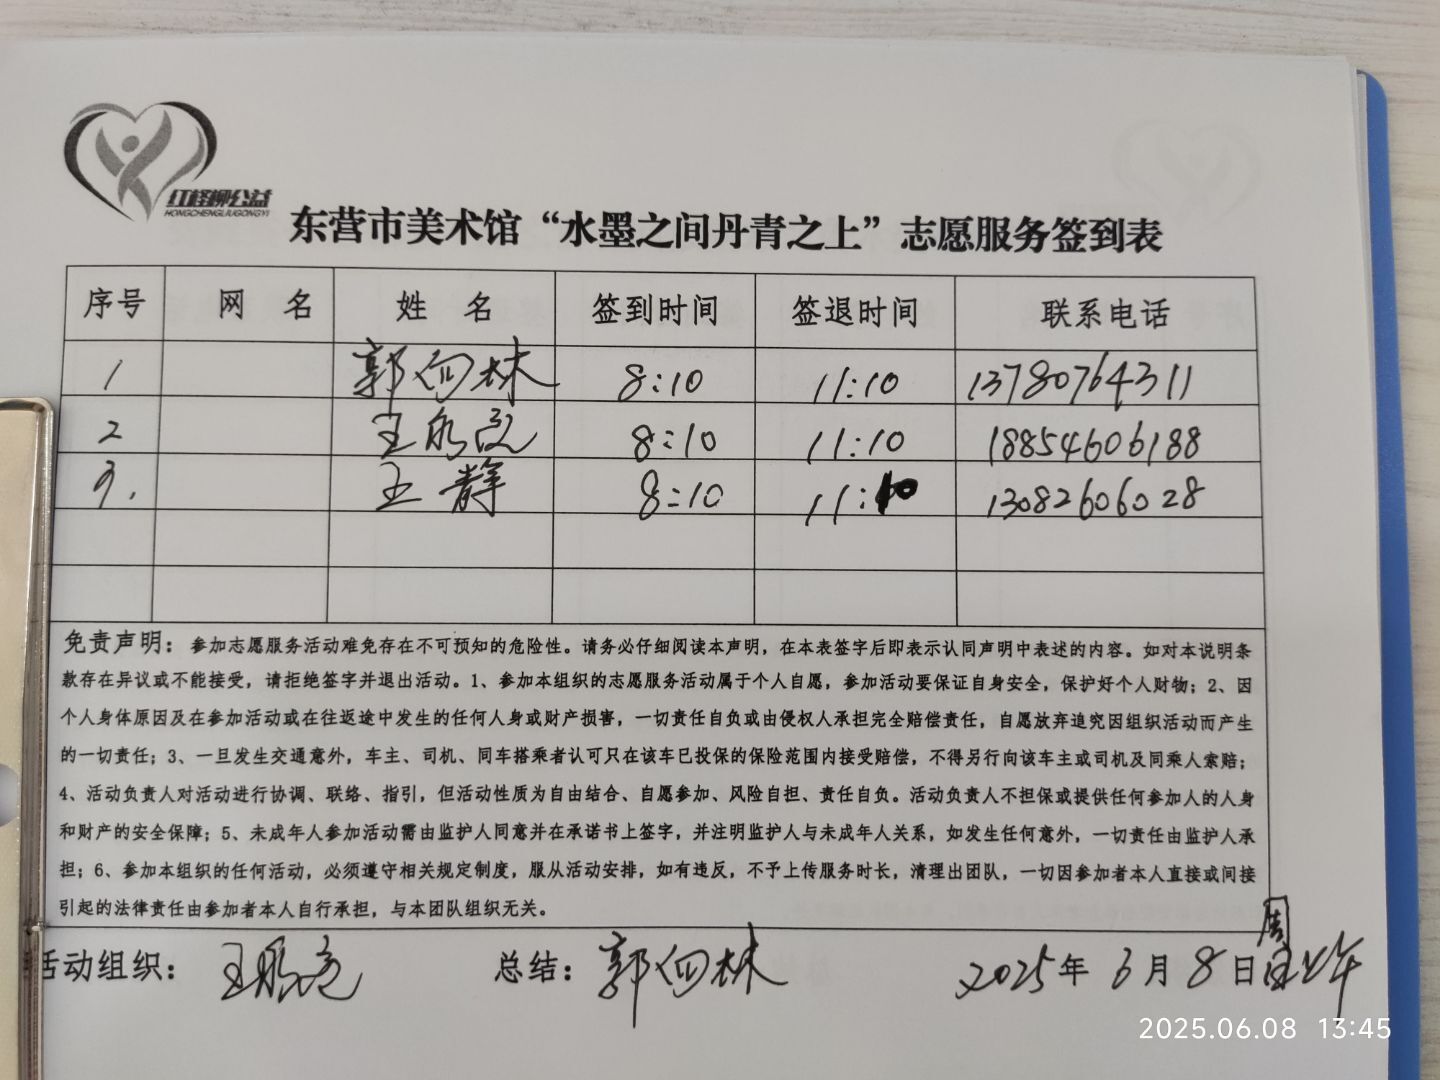 红柽柳公益
HONGCHENGLIUGONGYI
东营市美术馆“水墨之间丹青之上”志愿服务签到表
序号 网 名 姓 名 签到时间 签退时间 联系电话
1 郭向林 8:10 11:10 13780764311
2 王 8:10 11:10 18854606188
3. 王静 8:10 11:10 13082606028
免责声明：参加志愿服务活动难免存在不可预知的危险性。请务必仔细阅读本声明，在本表签字后即表示认同声明中表述的内容。如对本说明条
款存在异议或不能接受，请拒绝签字并退出活动。1、参加本组织的志愿服务活动属于个人自愿，参加活动要保证自身安全，保护好个人财物；2、因
个人身体原因及在参加活动或在往返途中发生的任何人身或财产损害，一切责任自负或由侵权人承担完全赔偿责任，自愿放弃追究因组织活动而产生
的一切责任；3、一旦发生交通意外，车主、司机、同车搭乘者认可只在该车已投保的保险范围内接受赔偿，不得另行向该车主或司机及同乘人索赔；
4、活动负责人对活动进行协调、联络、指引，但活动性质为自由结合、自愿参加、风险自担、责任自负。活动负责人不担保或提供任何参加人的人身
和财产的安全保障；5、未成年人参加活动需由监护人同意并在承诺书上签字，并注明监护人与未成年人关系，如发生任何意外，一切责任由监护人承
担；6、参加本组织的任何活动，必须遵守相关规定制度，服从活动安排，如有违反，不予上传服务时长，清理出团队，一切因参加者本人直接或间接
引起的法律责任由参加者本人自行承担，与本团队组织无关。
活动组织： 王 总结：郭向林 2025年 6月 8日周上午
2025.06.08 13:45